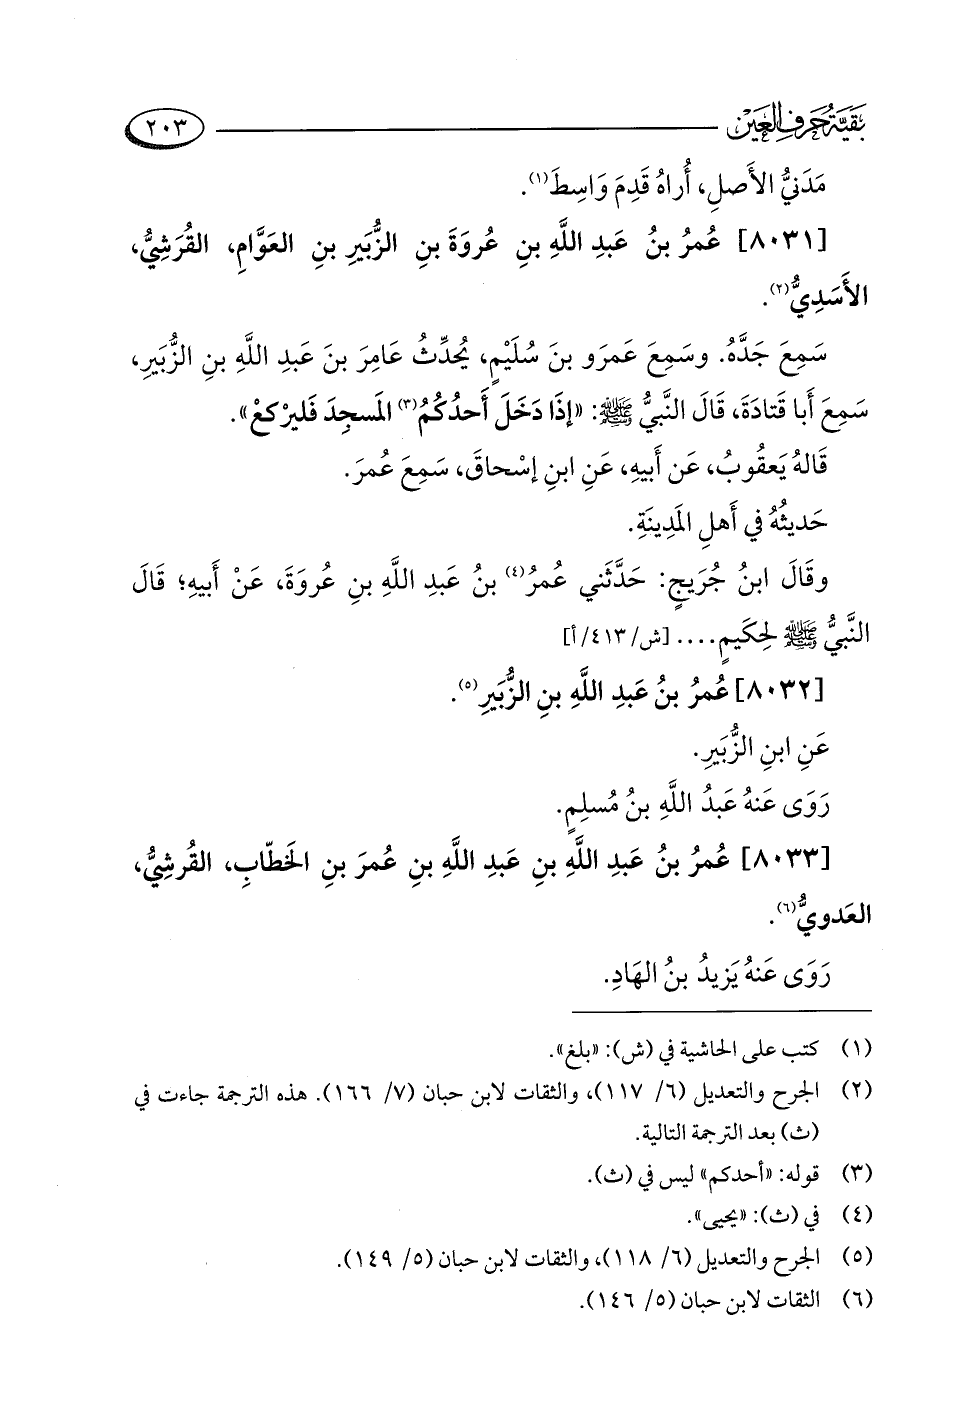 بقية حرف العين
٢٠٣
مَدَنيُّ الأَصلِ، أُراهُ قَدِمَ وَاسِطَ(١).
[٨٠٣١] عُمرُ بنُ عَبدِ اللَّهِ بنِ عُروَةَ بنِ الزُّبَيرِ بنِ العَوَّامِ، القُرَشِيُّ،
الأَسَدِيُّ(٢).
سَمِعَ جَدَّهُ. وسَمِعَ عَمرَو بنَ سُلَيْمٍ، يُحَدِّثُ عَامِرَ بنَ عَبدِ اللَّهِ بنِ الزُّبَيرِ،
سَمِعَ أَبا قَتادَةَ، قَالَ النَّبيُّ ﷺ: «إذَا دَخَلَ أَحدُكُمُ(٣) المَسجِدَ فَليرْكعْ».
قَالهُ يَعقُوبُ، عَن أَبيهِ، عَنِ ابنِ إسْحاقَ، سَمِعَ عُمرَ.
حَديثُهُ في أَهلِ المَدِينَةِ.
وقَالَ ابنُ جُرَيجٍ: حَدَّثَني عُمرُ(٤) بنُ عَبدِ اللَّهِ بنِ عُروَةَ، عَنْ أَبيهِ؛ قَالَ
النَّبيُّ ﷺ لِحكَيمٍ.... [ش/٤١٣/أ]
[٨٠٣٢] عُمرُ بنُ عَبدِ اللَّهِ بنِ الزُّبَيرِ(٥).
عَنِ ابنِ الزُّبَيرِ.
رَوَى عَنهُ عَبدُ اللَّهِ بنُ مُسلِمٍ.
[٨٠٣٣] عُمرُ بنُ عَبدِ اللَّهِ بنِ عَبدِ اللَّهِ بنِ عُمرَ بنِ الخَطّابِ، القُرشِيُّ،
العَدويُّ(٦).
رَوَى عَنهُ يَزيدُ بنُ الهَادِ.
(١) كتب على الحاشية في (ش): «بلغ».
(٢) الجرح والتعديل (٦/ ١١٧)، والثقات لابن حبان (٧/ ١٦٦). هذه الترجمة جاءت في
(ث) بعد الترجمة التالية.
(٣) قوله: «أحدكم» ليس في (ث).
(٤) في (ث): «يحيى».
(٥) الجرح والتعديل (٦/ ١١٨)، والثقات لابن حبان (٥/ ١٤٩).
(٦) الثقات لابن حبان (٥/ ١٤٦).